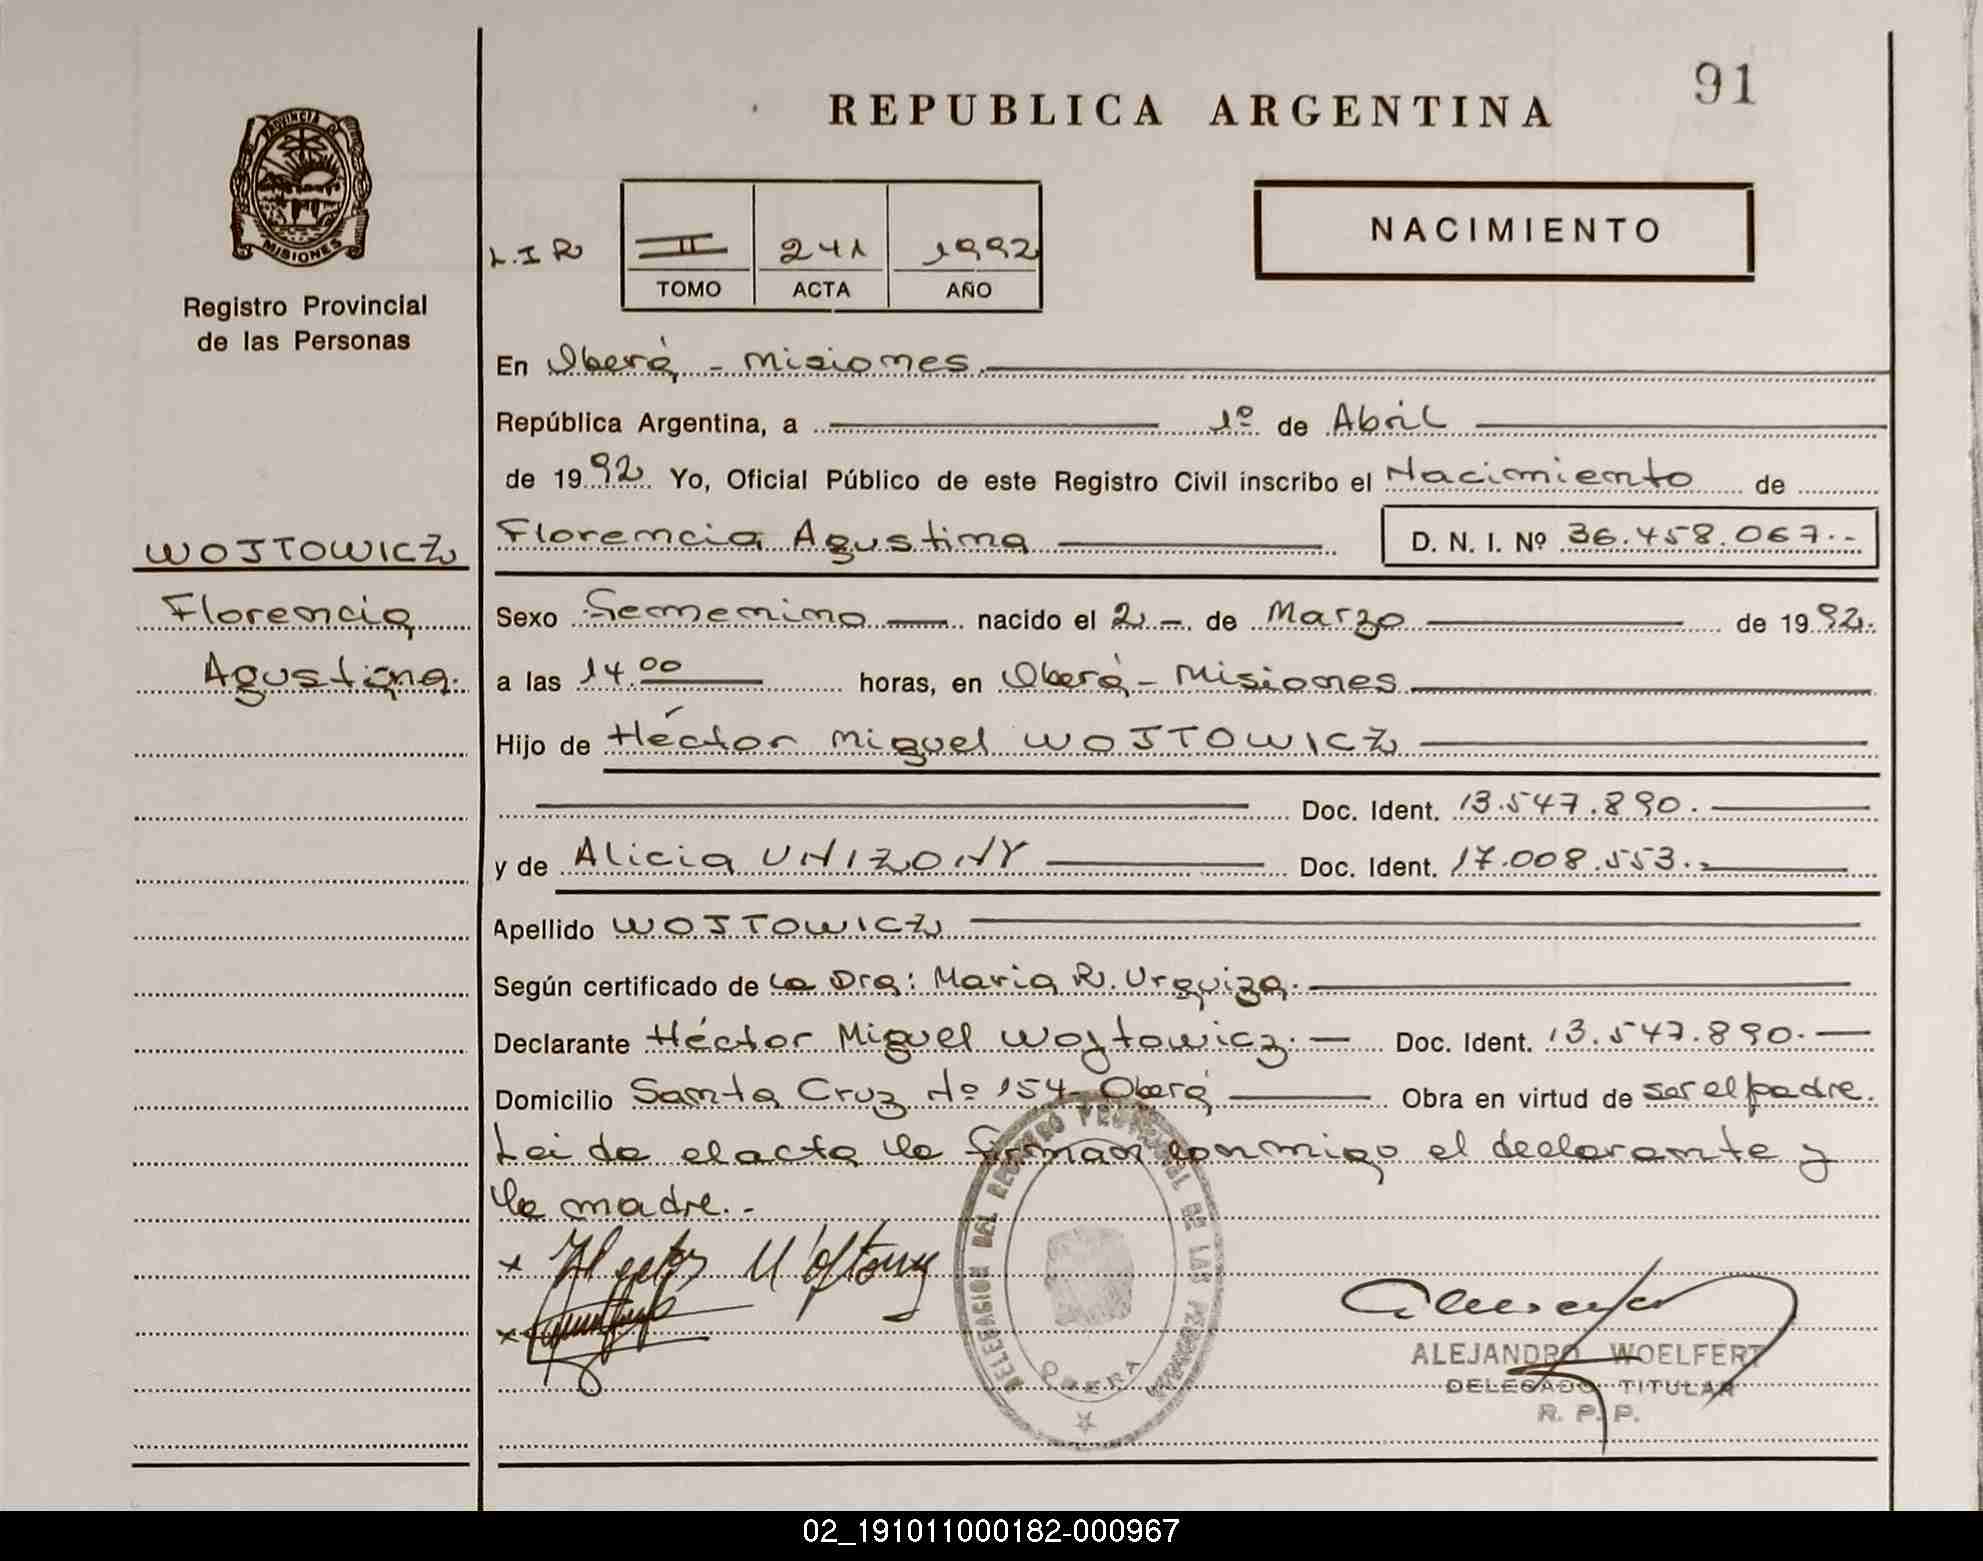 91
REPUBLICA ARGENTINA
PROVINCIA D
MISIONES
Registro Provincial
de las Personas
L.I R II 241 1992
TOMO ACTA AÑO
NACIMIENTO
En Oberá - Misiones.
República Argentina, a 1º de Abril
de 1992 Yo, Oficial Público de este Registro Civil inscribo el Nacimiento de
WOJTOWICZ
Florencia
Agustina.
Florencia Agustina D. N. I. Nº 36.458.067.-
Sexo Femenino nacido el 2 - de Marzo de 1992.
a las 14.00 horas, en Oberá - Misiones
Hijo de Héctor Miguel WOJTOWICZ
Doc. Ident. 13.547.890.
y de Alicia UNIZONY Doc. Ident. 17.008.553.-
Apellido WOJTOWICZ
Según certificado de la Dra: Maria R. Urquiza.
Declarante Héctor Miguel Wojtowicz. Doc. Ident. 13.547.890.
Domicilio Santa Cruz Nº 154 Oberá Obra en virtud de ser el padre.
Leida el acta la firman conmigo el declarante y
la madre.-
DELEGACION DEL REGISTRO PROVINCIAL DE LAS PERSONAS
OBERA
ALEJANDRO WOELFERT
DELEGADO TITULAR
R. P. P.
02_191011000182-000967